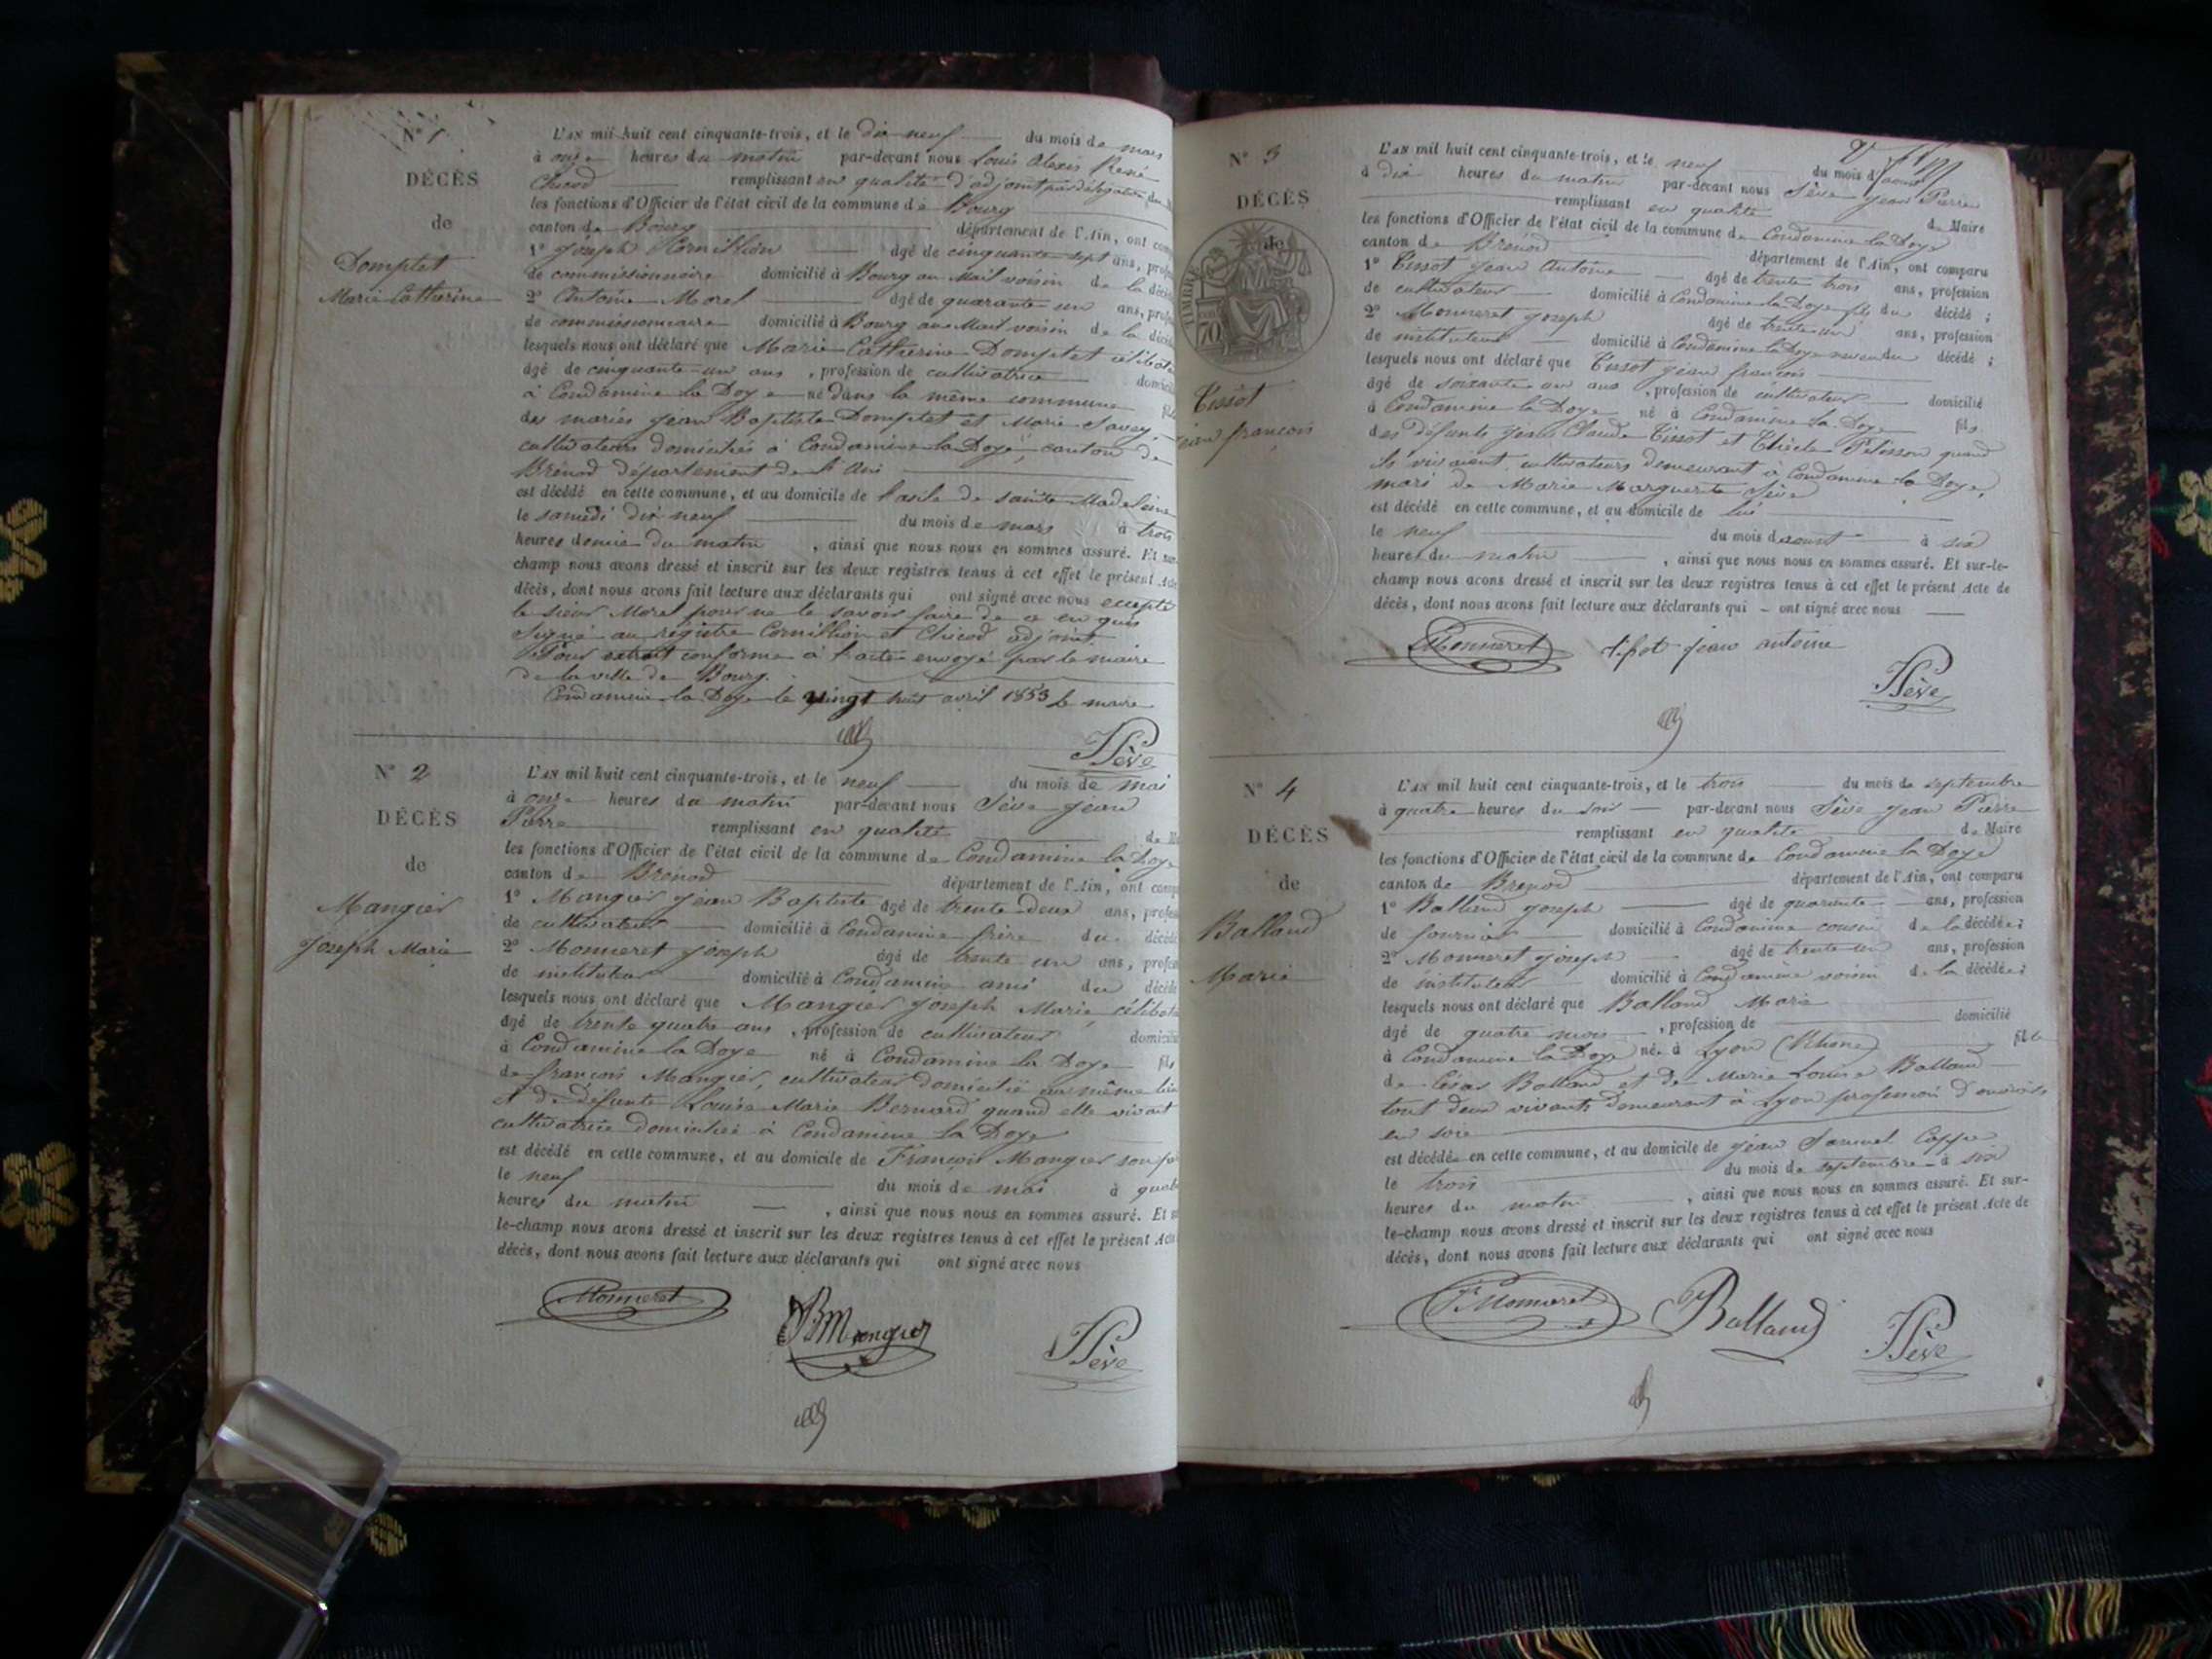 N° 1
DÉCÈS
de
Domptet
Marie Catherine
L'AN mil huit cent cinquante-trois, et le dix neuf du mois de mars
à onze heures du matin par-devant nous Louis Alexis René
Chicod remplissant en qualité d'adjoint par délégation du
les fonctions d'Officier de l'état civil de la commune de Bourg
canton de Bourg département de l'Ain, ont comp
1° Joseph Cornillion âgé de cinquante sept ans, profes
de commissionnaire domicilié à Bourg au Mail voisin de la décéd
2° Antoine Morel âgé de quarante un ans, profes
de commissionnaire domicilié à Bourg au Mail voisin de la décéd
lesquels nous ont déclaré que Marie Catherine Domptet célibata
âgé de cinquante un ans, profession de cultivatrice domicil
à Condamine la Doye né dans la même commune fil
des mariés Jean Baptiste Domptet et Marie Savey,
cultivateurs domiciliés à Condamine la Doye, canton de
Brénod département de l'Ain
est décédé en cette commune, et au domicile de l'asile de sainte Madeleine
le samedi dix neuf du mois de mars à trois
heures demie du matin, ainsi que nous nous en sommes assuré. Et sur
champ nous avons dressé et inscrit sur les deux registres tenus à cet effet le présent Acte
décès, dont nous avons fait lecture aux déclarants qui ont signé avec nous excepté
le sieur Morel pour ne le savoir faire de ce en quis
Signé au registre Cornillion et Chicod adjoint
Pour extrait conforme à l'acte envoyé par le maire
de la ville de Bourg.
Condamine la Doye le vingt huit avril 1853 Le maire
JPSève
N° 2
DÉCÈS
de
Mangier
Joseph Marie
L'AN mil huit cent cinquante-trois, et le neuf du mois de mai
à onze heures du matin par-devant nous Sève Jean
Pierre remplissant en qualité de M
les fonctions d'Officier de l'état civil de la commune de Condamine la Doye
canton de Brenod département de l'Ain, ont comp
1° Mangier Jean Baptiste âgé de trente-deux ans, profes
de cultivateur domicilié à Condamine frère du décédé
2° Monneret Joseph âgé de trente un ans, profes
de instituteur domicilié à Condamine ami du décédé
lesquels nous ont déclaré que Mangier Joseph Marie, célibata
âgé de trente quatre ans, profession de cultivateur domicilié
à Condamine la Doye né à Condamine la Doye fils
de françois Mangier, cultivateur domicilié au même lieu
et de défunte Louise Marie Bernard quand elle vivait
cultivatrice domiciliée à Condamine la Doye
est décédé en cette commune, et au domicile de François Mangier son pè
le neuf du mois de mai à quat
heures du matin, ainsi que nous nous en sommes assuré. Et s
le-champ nous avons dressé et inscrit sur les deux registres tenus à cet effet le présent Acte
décès, dont nous avons fait lecture aux déclarants qui ont signé avec nous
Monneret
JBMangier
JPSève
N° 3
DÉCÈS
de
TIMBRE
70
Tissot
Jean françois
L'AN mil huit cent cinquante-trois, et le neuf du mois d'aout
à dix heures du matin par-devant nous Sève Jean Pierre
remplissant en qualité de Maire
les fonctions d'Officier de l'état civil de la commune de Condamine la Doye
canton de Brenod département de l'Ain, ont comparu
1° Tissot Jean Antoine âgé de trente trois ans, profession
de cultivateur domicilié à Condamine la Doye fils du décédé ;
2° Monneret Joseph âgé de trente un ans, profession
de instituteur domicilié à Condamine la Doye neveu du décédé ;
lesquels nous ont déclaré que Tissot Jean françois
âgé de soixante un ans, profession de cultivateur domicilié
à Condamine la Doye né à Condamine la Doye fils
des défunts Jean Claude Tissot et Thècle Pelisson quand
ils vivaient, cultivateurs demeurant à Condamine la Doye,
mari de Marie Marguerite Sève
est décédé en cette commune, et au domicile de lui
le neuf du mois d'aout à six
heures du matin, ainsi que nous nous en sommes assuré. Et sur-le-
champ nous avons dressé et inscrit sur les deux registres tenus à cet effet le présent Acte de
décès, dont nous avons fait lecture aux déclarants qui ont signé avec nous
Monneret
tissot jean antoine
JPSève
N° 4
DÉCÈS
de
Balland
Marie
L'AN mil huit cent cinquante-trois, et le trois du mois de septembre
à quatre heures du soir par-devant nous Sève Jean Pierre
remplissant en qualité de Maire
les fonctions d'Officier de l'état civil de la commune de Condamine la Doye
canton de Brenod département de l'Ain, ont comparu
1° Balland Joseph âgé de quarante ans, profession
de fournier domicilié à Condamine cousin de la décédée ;
2° Monneret Joseph âgé de trente un ans, profession
de instituteur domicilié à Condamine voisin de la décédée ;
lesquels nous ont déclaré que Balland Marie
âgé de quatre mois, profession de domicilié
à Condamine la Doye née à Lyon (Rhone) fille
de César Balland et de Marie Louise Balland
tout deux vivants demeurant à Lyon profession d'ouvriers
en soie
est décédée en cette commune, et au domicile de Jean Samuel Cappe
le trois du mois de septembre à six
heures du matin, ainsi que nous nous en sommes assuré. Et sur-
le-champ nous avons dressé et inscrit sur les deux registres tenus à cet effet le présent Acte de
décès, dont nous avons fait lecture aux déclarants qui ont signé avec nous
JMonneret
Balland
JPSève